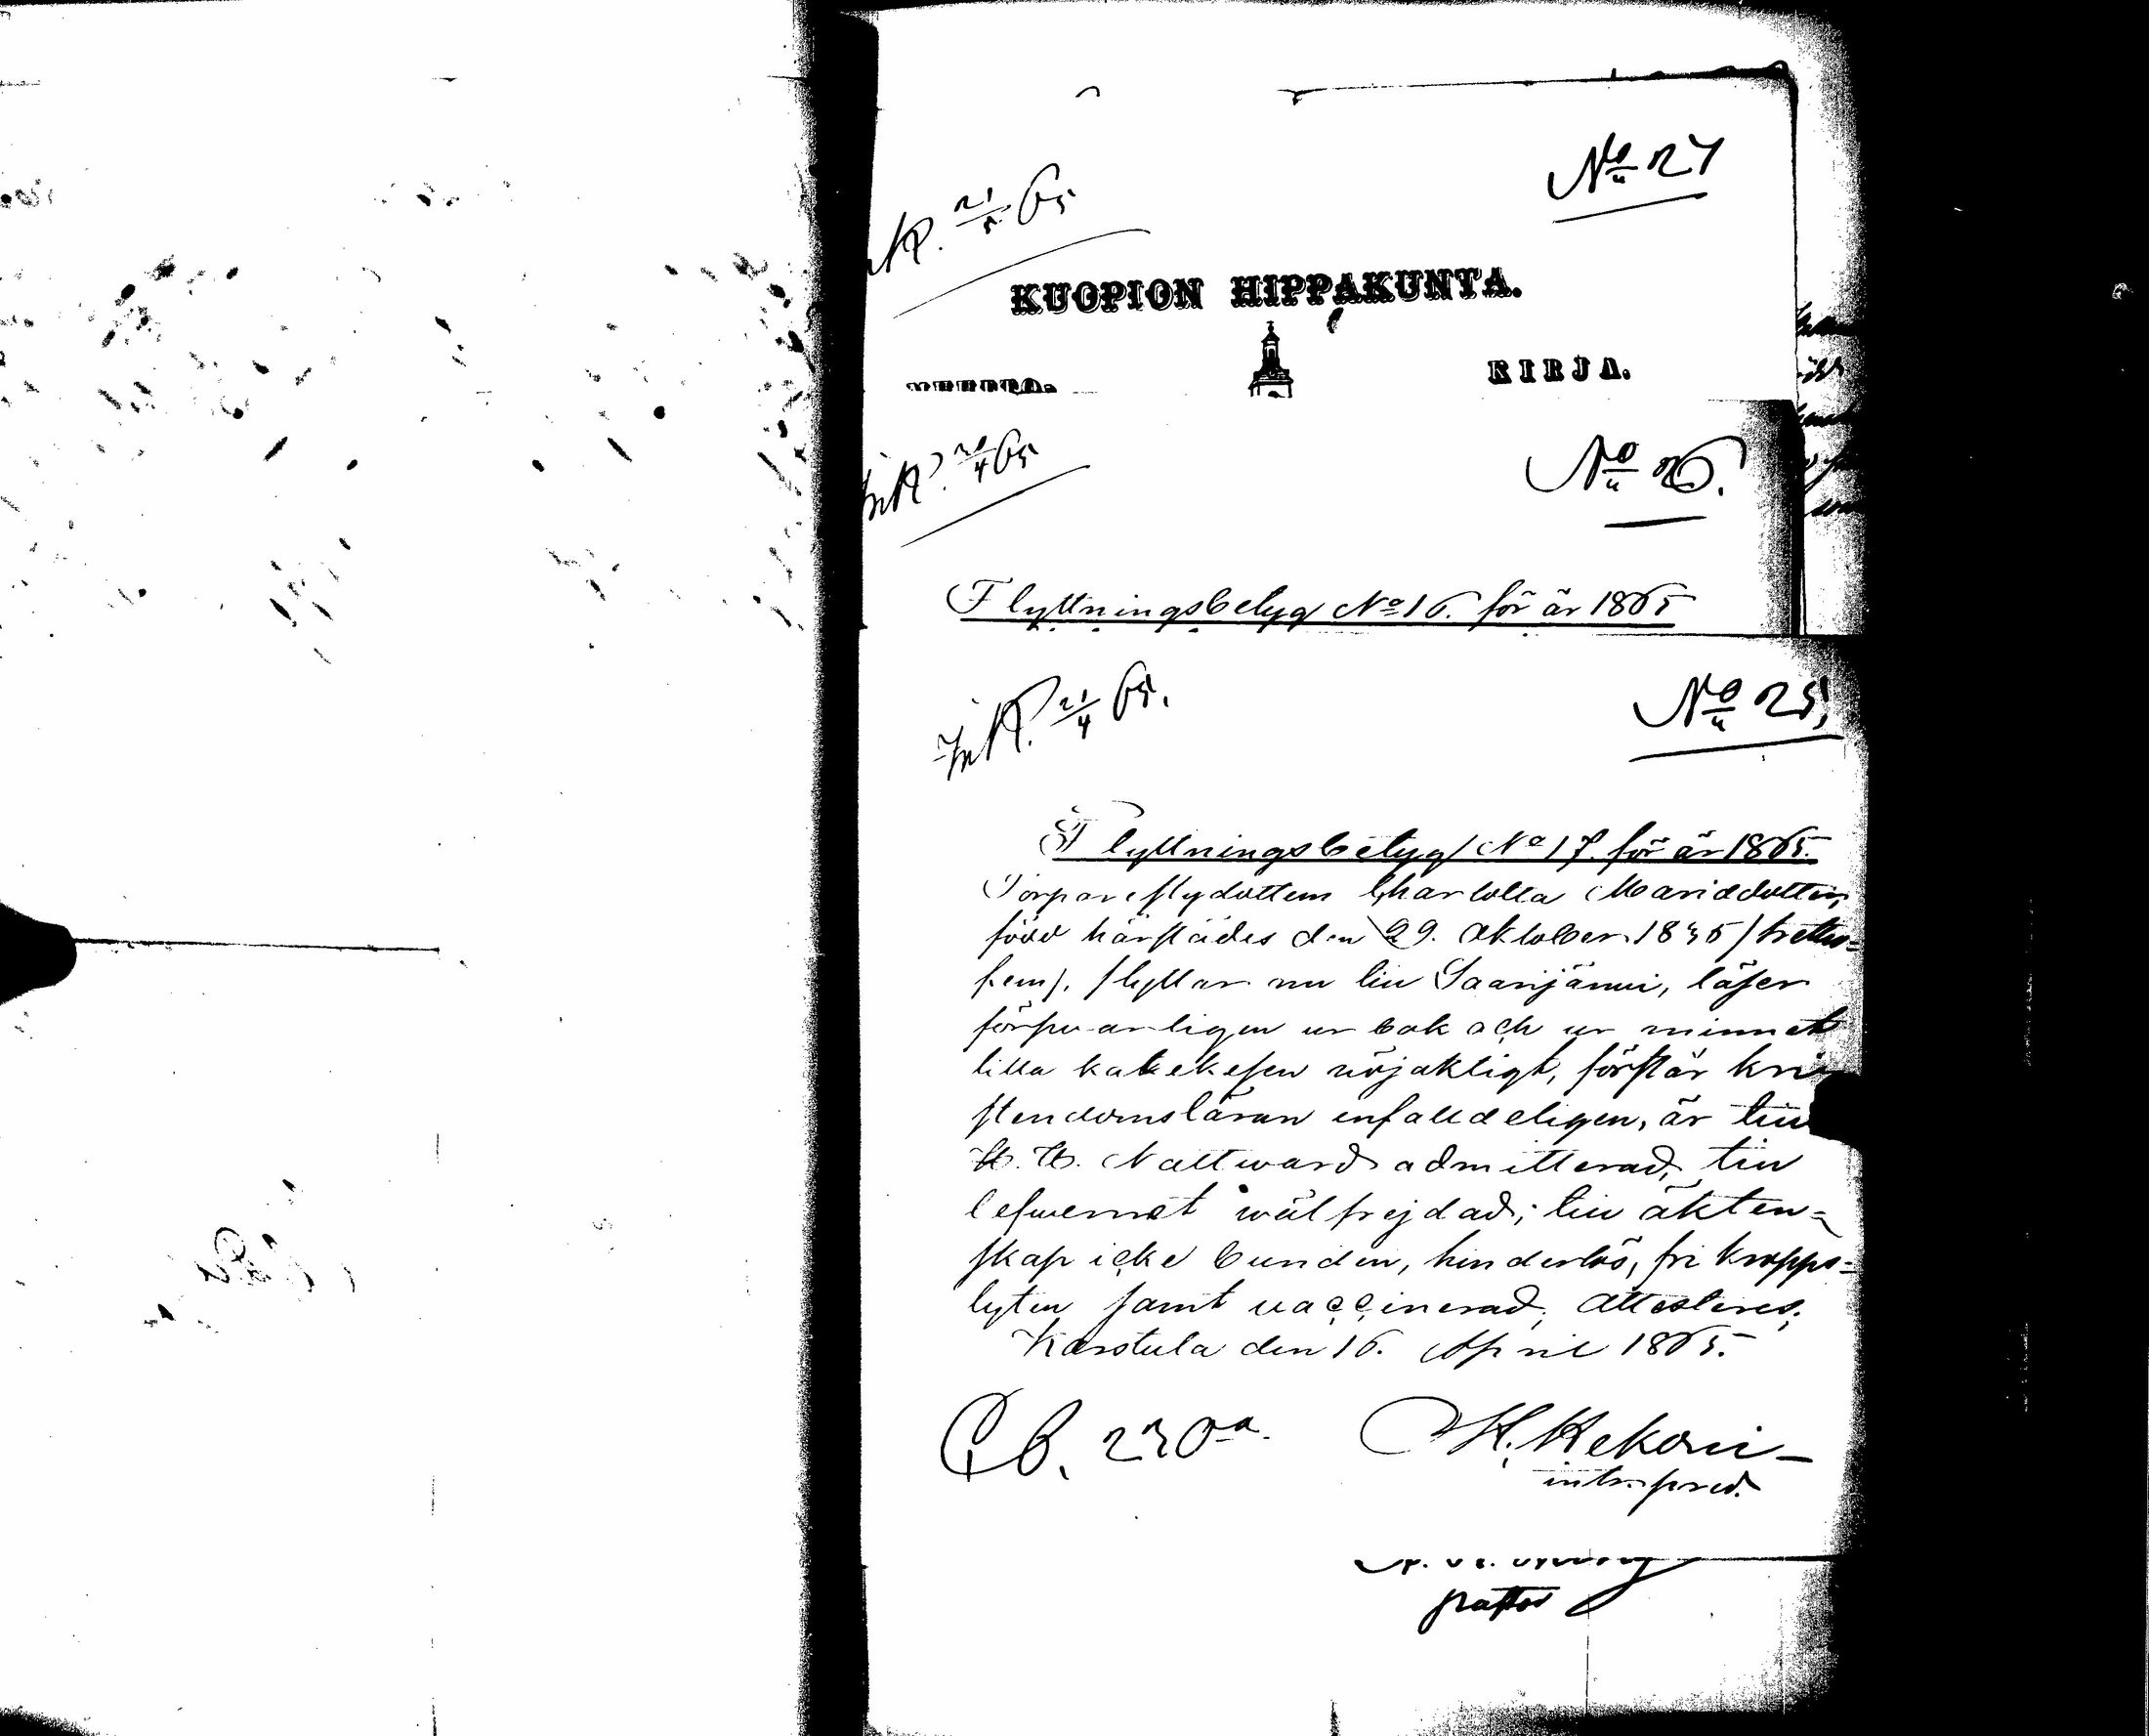 No 27
Ink. 21/5 65
KUOPION HIPPAKUNTA.
KIRJA.
Ink. 21/4 65
No 26.
Flyttningsbetyg No 16. för år 1865
Ink. 21/4 65.
No 25,
Flyttningsbetyg No 17. för år 1865.
Torpareflydottern Charlotta Mariddotter,
född härstädes den 29. Oktober 1835 / trettio=
fem /, flyttar nu till Saarijärwi, läser
försvarligen ur bok och ur minnet
lilla katekesen nöjaktigt, förstår kri
stendomsläran enfalldeligen, är till
H. H. Nattward admitterad, till
lefwernet wälfrejdad; till äkten=
skap icke bunden, hinderlös, fri kropps=
lyten samt vaccinerad, attesteres;
Karstula den 16. April 1865.
C.B. 230a.
K. Kekoni
intr. pred.
pastor